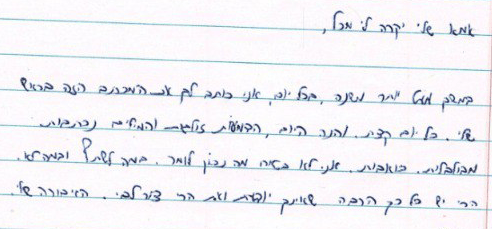 אמא שלי יקרה לי מכל,
במשך מעט יותר משנה, בכל יום, אני כותב לך את המכתב הזה בראש
שלי. כל יום קצת. והנה היום, הדמעות זולגות והמילים נכתבות
מבולבלות. כואבות. אני לא בטוח מה נכון לומר. במה לשתף ובמה לא.
הרי יש כל כך הרבה שאינך יודעת ואת הרי צור לבי. הגיבורה שלי.